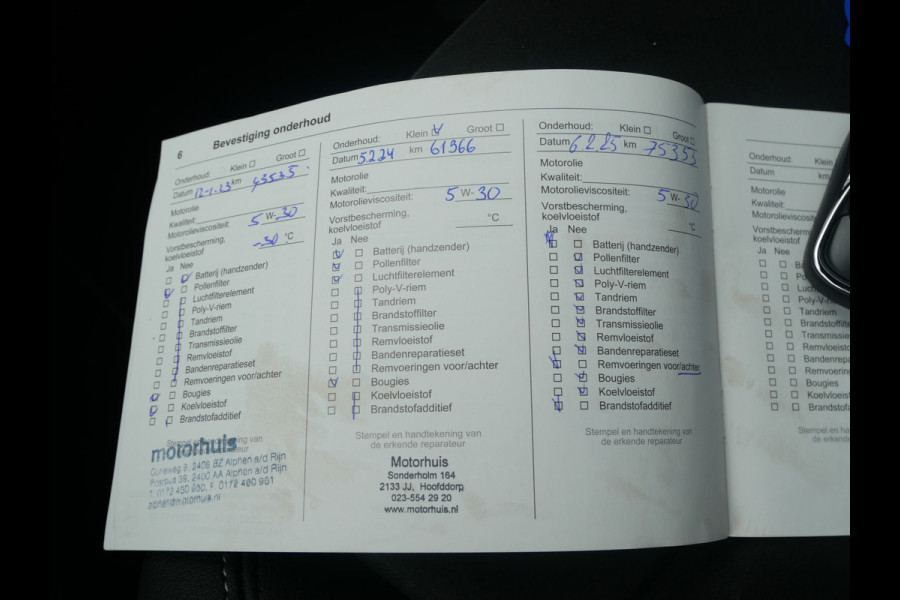 6 Bevestiging onderhoud
Onderhoud: Klein Groot
Datum 12-1-23 km 43535
Motorolie
Kwaliteit:
Motorolieviscositeit: 5 W-30
Vorstbescherming, -30 °C
koelvloeistof
Ja Nee
Batterij (handzender)
Pollenfilter
Luchtfilterelement
Poly-V-riem
Tandriem
Brandstoffilter
Transmissieolie
Remvloeistof
Bandenreparatieset
Remvoeringen voor/achter
Bougies
Koelvloeistof
Brandstofadditief
Stempel en handtekening van
motorhuis
2406 BZ Alphen a/d Rijn
Postbus 39, 2400 AA Alphen a/d Rijn
Onderhoud: Klein Groot
Datum 5224 km 61366
Motorolie
Kwaliteit:
Motorolieviscositeit: 5 W-30
Vorstbescherming,
koelvloeistof °C
Ja Nee
Batterij (handzender)
Pollenfilter
Luchtfilterelement
Poly-V-riem
Tandriem
Brandstoffilter
Transmissieolie
Remvloeistof
Bandenreparatieset
Remvoeringen voor/achter
Bougies
Koelvloeistof
Brandstofadditief
Stempel en handtekening van
de erkende reparateur
Motorhuis
Sonderholm 164
2133 JJ, Hoofddorp
023-554 29 20
www.motorhuis.nl
Onderhoud: Klein Groot
Datum 6 2 25 km 75353
Motorolie
Kwaliteit:
Motorolieviscositeit: 5 W-30
Vorstbescherming,
koelvloeistof °C
Ja Nee
Batterij (handzender)
Pollenfilter
Luchtfilterelement
Poly-V-riem
Tandriem
Brandstoffilter
Transmissieolie
Remvloeistof
Bandenreparatieset
Remvoeringen voor/achter
Bougies
Koelvloeistof
Brandstofadditief
Stempel en handtekening van
de erkende reparateur
Onderhoud: Klein
Datum km
Motorolie
Kwaliteit:
Motorolieviscositeit:
Vorstbescherming,
koelvloeistof
Ja Nee
Ba
Pollen
Luch
Poly-V-r
Tandriem
Brandstoffi
Transmissi
Remvloeis
Bandenrepa
Remvoerin
Bougies
Koelvloeist
Brandstofa
Stempel en handteke
de erkende repa